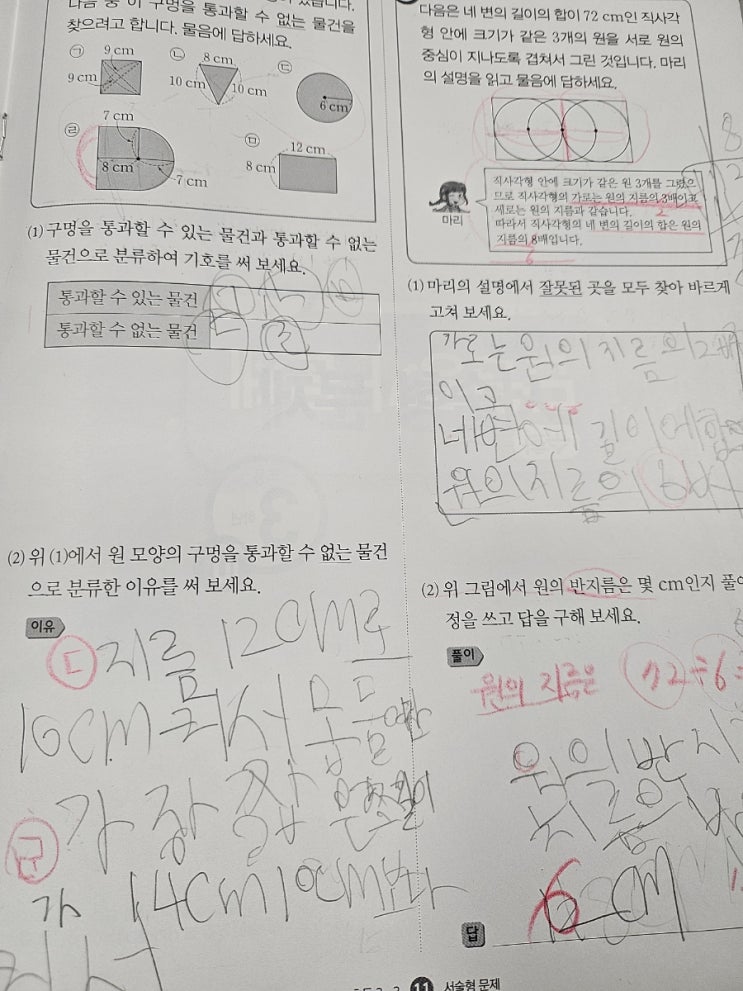 이 구멍을 통과할 수 없는 물건을
찾으려고 합니다. 물음에 답하세요.
㉠ 9 cm
9 cm
㉡ 8 cm
10 cm 10 cm
㉢
6 cm
㉣ 7 cm
8 cm
7 cm
㉤ 12 cm
8 cm
(1) 구멍을 통과할 수 있는 물건과 통과할 수 없는
물건으로 분류하여 기호를 써 보세요.
통과할 수 있는 물건
통과할 수 없는 물건
(2) 위 (1)에서 원 모양의 구멍을 통과할 수 없는 물건
으로 분류한 이유를 써 보세요.
이유
ㄷ 지름 12cm로
10cm 커서 못
가장
가 14cm 10cm보다
다음은 네 변의 길이의 합이 72 cm인 직사각
형 안에 크기가 같은 3개의 원을 서로 원의
중심이 지나도록 겹쳐서 그린 것입니다. 마리
의 설명을 읽고 물음에 답하세요.
마리
직사각형 안에 크기가 같은 원 3개를 그렸으
므로 직사각형의 가로는 원의 지름의 3배이고
세로는 원의 지름과 같습니다.
2
따라서 직사각형의 네 변의 길이의 합은 원의
지름의 8배입니다.
6
(1) 마리의 설명에서 잘못된 곳을 모두 찾아 바르게
고쳐 보세요.
가로는 원의 지름의 2배
이고
네변에 길이에 합
원의 지름의 6배
(2) 위 그림에서 원의 반지름은 몇 cm인지 풀이
정을 쓰고 답을 구해 보세요.
풀이
원의 지름은 72÷6=
답 6 cm
11 서술형 문제